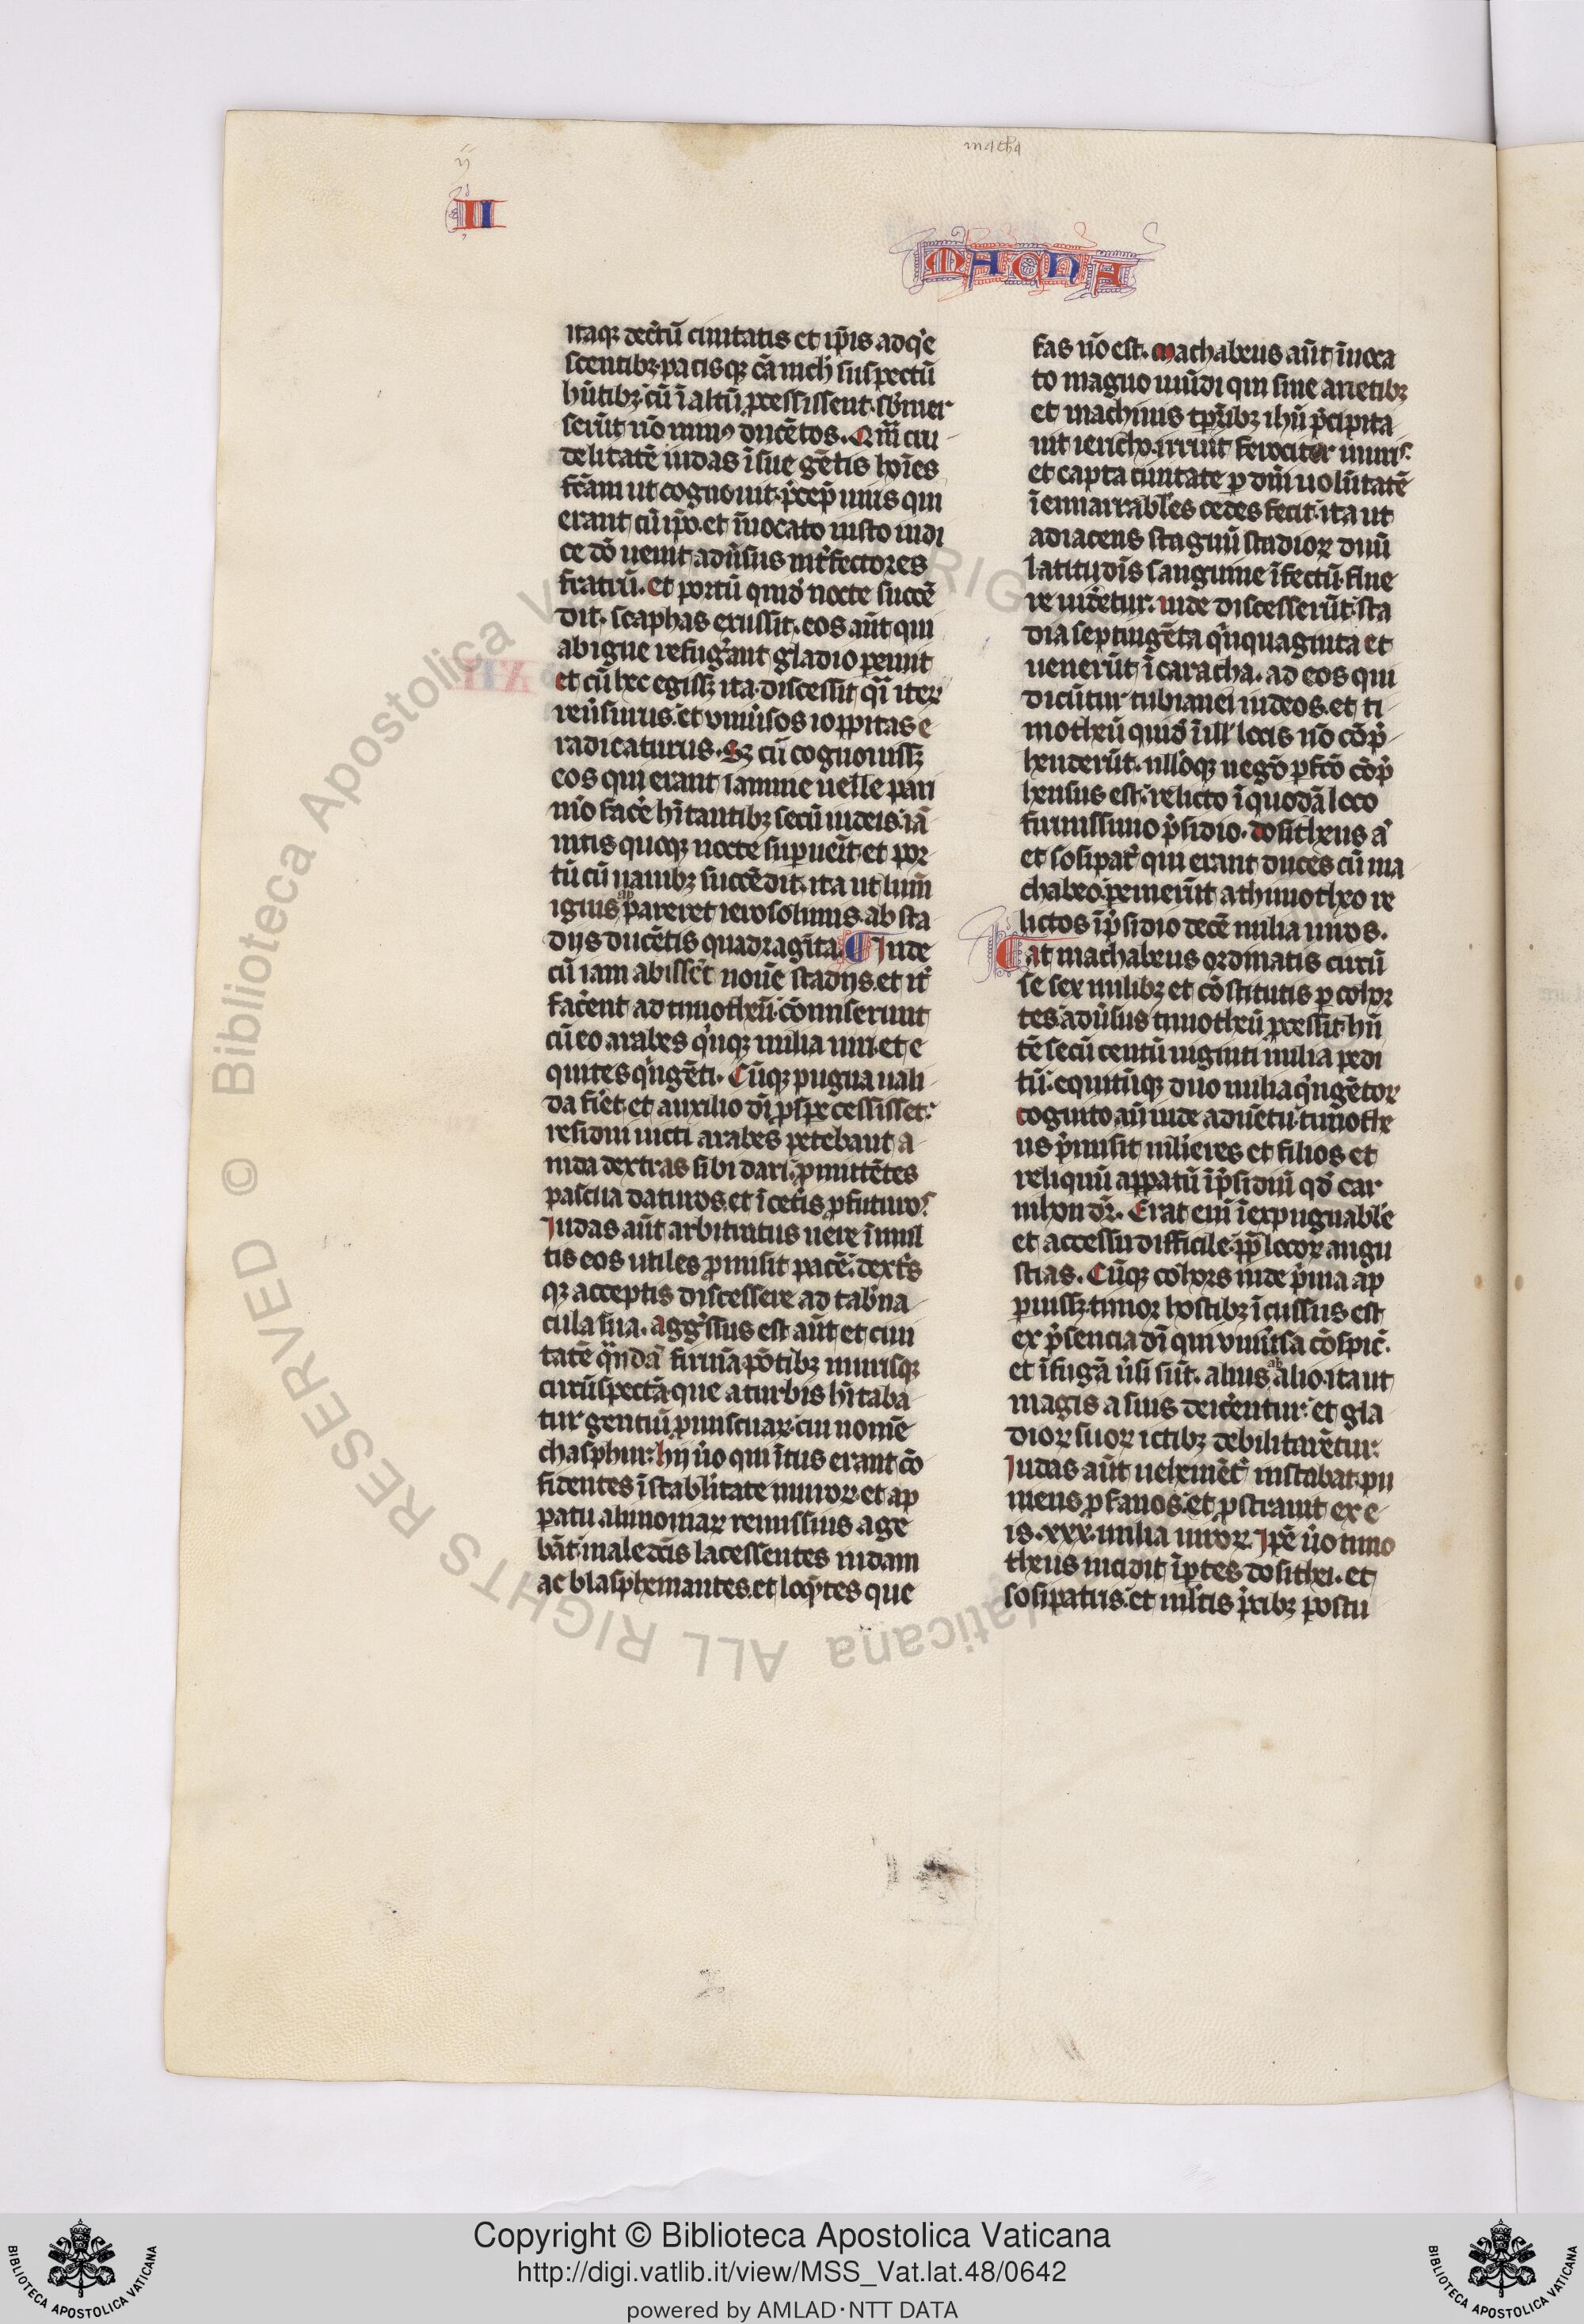 ij
macha
II
MACHA
itaqꝫ decr̄tū ciuitatis et ip̄is adqͥe
scentibꝫ. pacisqꝫ cā nich̓ suspectū
hn̄tibꝫ. cū ī altū ꝓcessissent. sb̄mer
serūt nō minꝰ ducētos. Qm̄ cru
delitatē iudas ī sue gētis hoīes
fc̄am ut cognouit. p̄cep̄ uiris qui
erant cū ip̄o. et īuocato iusto iudi
ce dō uenit adūsus int̓fectores
fratrū. et portū quid̓ nocte succē
dit. scaphas exussit. eos aūt qui
ab igne refug̓ant gladio peremit
et cū hec egissꝫ ita. discessit qͣi iteꝝ
reūsurus. et uniūsos ioppitas e
radicaturus. Sꝫ cū cognouissꝫ
eos qui erant iamnie uelle pari
mō fac̓e hītantibꝫ secū iudeis. iā
nitis quoqꝫ nocte superuēit. et por
tū cū nauibꝫ succēdit. ita ut lum̄
ignis appareret ierosolimis. ab sta
dijs ducētis quadragīta. Inde
cū iam abissēt nouē stadijs. et it̓
fac̓ent ad timotheū. cōmiserunt
cū eo arabes qͥnqꝫ milia uiri. et e
quites qͥngēti. Cūqꝫ pugna uali
da fi̓et. et auxilio dī ꝓspe cessisset.
residui uicti arabes petebant a
iuda dextras sibi dari. ꝓmittētes
pascua daturos. et ī cetīs ꝓfuturos
Iudas aūt arbitratus uere ī mul
tis eos utiles ꝓmisit pacē. dext̓s
qꝫ acceptis discessere ad tab̓na
cula sua. aggͥssus est aūt et ciui
tatē qͣndā firmā. pōtibꝫ murisqꝫ
circūspectā. que a turbis hītaba
tur gentiū ꝓmiscuaꝝ. cui nomē
chasphur. hij ūo qui ītus erant cō
fidentes ī stabīlitate muroꝝ. et ap
patu alimoniaꝝ remissius age
bāt. maledc̄is lacessentes iudam
ac blasphemantes. et loqͣtes que
fas nō est. Machabeus aūt īuoca
to magno mūdi qui sine arietibꝫ
et machinis tp̄ribꝫ ihū p̄cipita
uit iericho. irruit ferociter muris.
et capta ciuitate p dn̄i uolūtatē
īennarrabiles cedes fecit. ita ut
adiacens stagnū stadioꝝ duū
latitudīs sanguine īfectū flue
re uid̓etur. Inde discesserūt sta
dia septingēta qͥnquaginta et
uenerūt ī caracha. ad eos qui
dicūtur tubianei iudeos. et ti
motheū quid̓ ī ill̓ locis nō cōp̄
henderūt. nulloqꝫ negō pfc̄o cōp̄
hensus est. relicto ī quodā loco
firmissimo p̄sidio. dositheus a̓
et sosipat̓ qui erant duces cū ma
chabeo. peremerūt a thimotheo re
lictos ī p̄sidio decē milia uiros.
at machabeus ordinatis circū
se sex milibꝫ et cōstitutis p cohoꝝ
tes adūsus timotheū ꝓcessit. hn̄
tē secū centū uiginti milia pedi
tū. equitūqꝫ duo milia qͥngētoꝝ
cognito aū iude aduētu. timothe
us p̄misit mulieres et filios et
reliquū appatū ī p̄sidiū qd̓ car
nihon dr̄. Erat eni īexpugnabile
et accessu difficile. ꝓp̄ locoꝝ angu
stias. Cūqꝫ cohors iude p̄ma ap
paruissꝫ. timor hostibꝫ īcussus est
ex p̄sencia dī qui uniūsa cōspic̓.
et ī fugā ūsi sūt. alius ab alio. ita ut
magis a suis deic̓entur. et gla
dioꝝ suoꝝ ictibꝫ debilitarētur.
Iudas aūt uehemēt̓ instabat. pu
niens ꝓfanos. et ꝓstrauit ex e
is .xxx. milia uiroꝝ. Ip̄e ūo timo
theus incidit ī ptes dosithei. et
sosipatris. et multis p̄cibꝫ postu
© Biblioteca Apostolica Vaticana ALL RIGHTS RESERVED
Copyright © Biblioteca Apostolica Vaticana
http://digi.vatlib.it/view/MSS_Vat.lat.48/0642
powered by AMLAD·NTT DATA
BIBLIOTECA APOSTOLICA VATICANA
BIBLIOTECA APOSTOLICA VATICANA